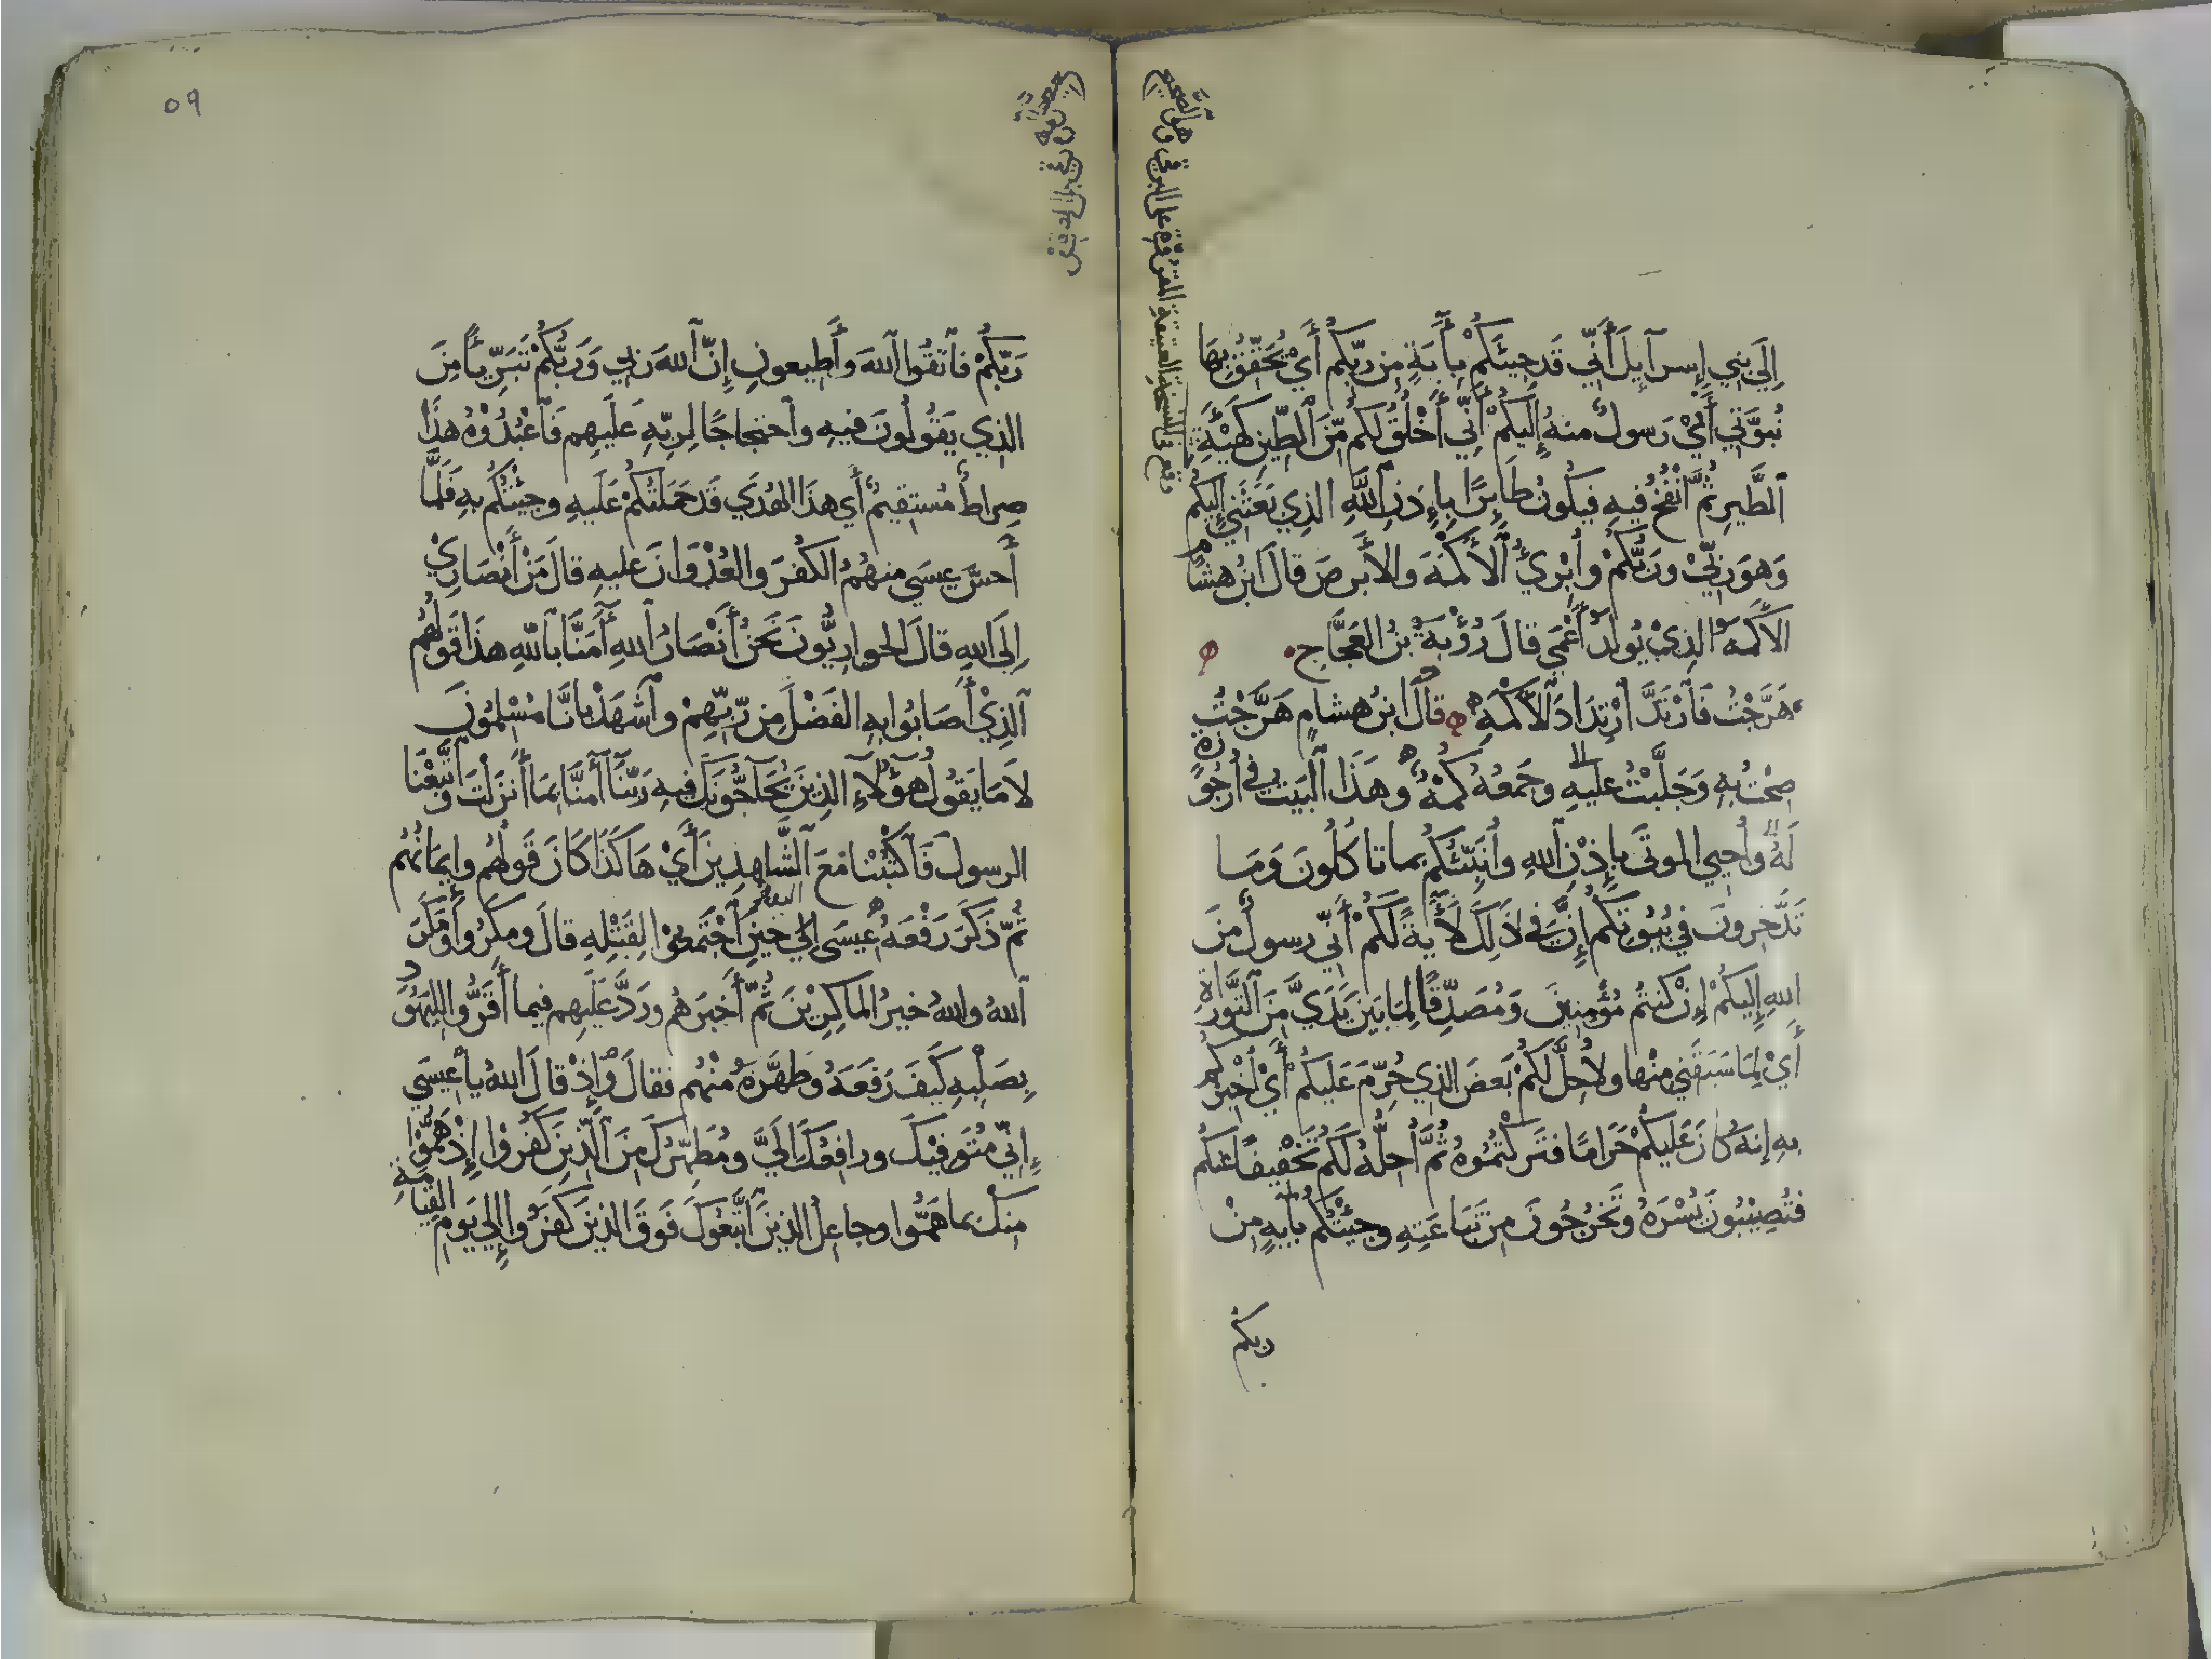 إِلَى بني إِسرآيلَ أَنِّي قَد جِيتُكُمْ بِأَيَةٍ مِن رَبِّكم أَيْ تُحَقِّقُ بِهَا
نُبُوَّتِي أَنِّيْ رَسولٌ منهُ إِلَيكُمْ أَنِّي أَخْلُقُ لَكُم مِّنَ الطِّينِ كَهَيْئَةِ
الطَّيرِ ثُمَّ أَنْفُخُ فِيهِ فَيَكُونُ طَايِرًا بِإِذنِ اللَّهِ الذِي بَعَثَنِي إِلَيكُم
وَهوَ رَبِّيْ ورَبُّكُمْ وأُبْرِئُ الأَكْمَهَ والأَبرصَ قالَ ابنُ هشامٍ
الأَكْمَهُ الذِيْ يُولَدُ أَعْمَى قالَ رُؤْبَةُ بنُ العَجَّاجِ
هَرَّجْتُ فَارْتَدَّ ارْتِدَادَ الأَكْمَهِ قالَ ابنُ هشامٍ هَرَّجْتُ
صِحْتُ بِهِ وَجَلَّبْتُ عليهِ وجَمعُهُ كُمْهٌ وهَذَا البَيتُ في أُرجُوزَةٍ
لَهُ وأُحيي الموتَى بإِذْنِ اللهِ وأُنَبِّئُكُم بما تاكُلُونَ وَمَا
تَدَّخِرونَ في بُيُوتِكُم إِنَّ في ذَلِكَ لأَيَةً لَكُمْ أَنِّي رسولٌ مِنَ
اللهِ إِلَيكُمْ إِنْ كنتُم مُؤْمِنِينَ وَمُصَدِّقًا لِمَا بَينَ يَدَيَّ مِنَ التَّورَاةِ
أَيْ لِمَا سَبَقَنِي مِنْها ولأُحِلَّ لَكُمْ بَعضَ الذِي حُرِّمَ عَلَيكُمْ أَيْ أُخْبِرُكُم
بهِ إِنهُ كانَ عَلَيكُمْ حَرَامًا فَتَركْتُمُوهُ ثُمَّ أُحِلُّهُ لَكُم تَخْفِيفًا عَنكُم
فتُصِيْبُونَ يُسْرَهُ وتَخْرُجُونَ مِن تِبَاعَتِهِ وجِئتُكُم بأَيةٍ مِنْ
ربكم
وقع في النسخة العتيقة المقروة على البرقي وهو الصحيح
٥٩
رَبِّكُمْ فاتَّقُوا اللهَ وأَطِيعونِ إِنَّ اللهَ رَبِّي وَرَبُّكُمْ تَبَرِّيًا مِنَ
الذِي يَقُولُونَ فيهِ واحتِجَاجًا لِرَبِّهِ عَلَيهِم فَاعْبُدُوْهُ هذَا
صِراطٌ مُستقيمٌ أَي هذَا الهُدَي قَد حَمَلتُكُمْ عَلَيهِ وجِيْتُكُم بهِ فَلَمَّا
أَحسَّ عِيسَى منهُمُ الكُفرَ والعُدْوَانَ عليهِ قالَ مَنْ أَنْصَارِيْ
إِلَى اللهِ قالَ الحوارِيُّونَ نَحنُ أَنْصَارُ اللهِ أَمَنَّا باللهِ هذَا قَولُهُم
الذِيْ أَصَابُوا بهِ الفَضْلَ مِن رَّبِّهِمْ واشْهَدْ بأَنَّا مُسْلِمُونَ
لاَ مَا يَقُولُ هَؤُلآءِ الذِينَ يُحَآجُّونَكَ فيهِ رَبَّنَا أَمَنَّا بِمَا أَنزَلْتَ واتَّبَعْنَا
الرسولَ فَاكْتُبْنَا مَعَ الشَّاهِدِينَ أَيْ هَاكَذَا كَانَ قَولُهُم وإِيمَانُهُم
ثُمَّ ذَكَرَ رَفْعَهُ عِيسَى إِليهِ حينَ اجتَمَعُوْا لِقَتْلِهِ قالَ ومكَرُوا وَمَكَرَ
اللهُ واللهُ خيرُ الماكِرِيْنَ ثُمَّ أَخبَرَهُم ورَدَّ عَلَيهِم فيما أَقَرُّوا لليَهُودِ
بِصَلْبِهِ كَيفَ رَفَعَهُ وطَهَّرَهُ منْهُم فقالَ وإِذْ قالَ اللهُ يا عِيسَى
إِنِّي مُتَوَفِّيْكَ ورافِعُكَ إِلَيَّ ومُطَهِّرُكَ مِنَ الَّذِينَ كَفَرُوْا إِذْ هَمُّوْا
مِنكَ بما هَمُّوا وجاعلُ الذينَ اتَّبَعُوكَ فَوقَ الذينَ كَفَرُوا إِلى يَومِ القِيامةِ